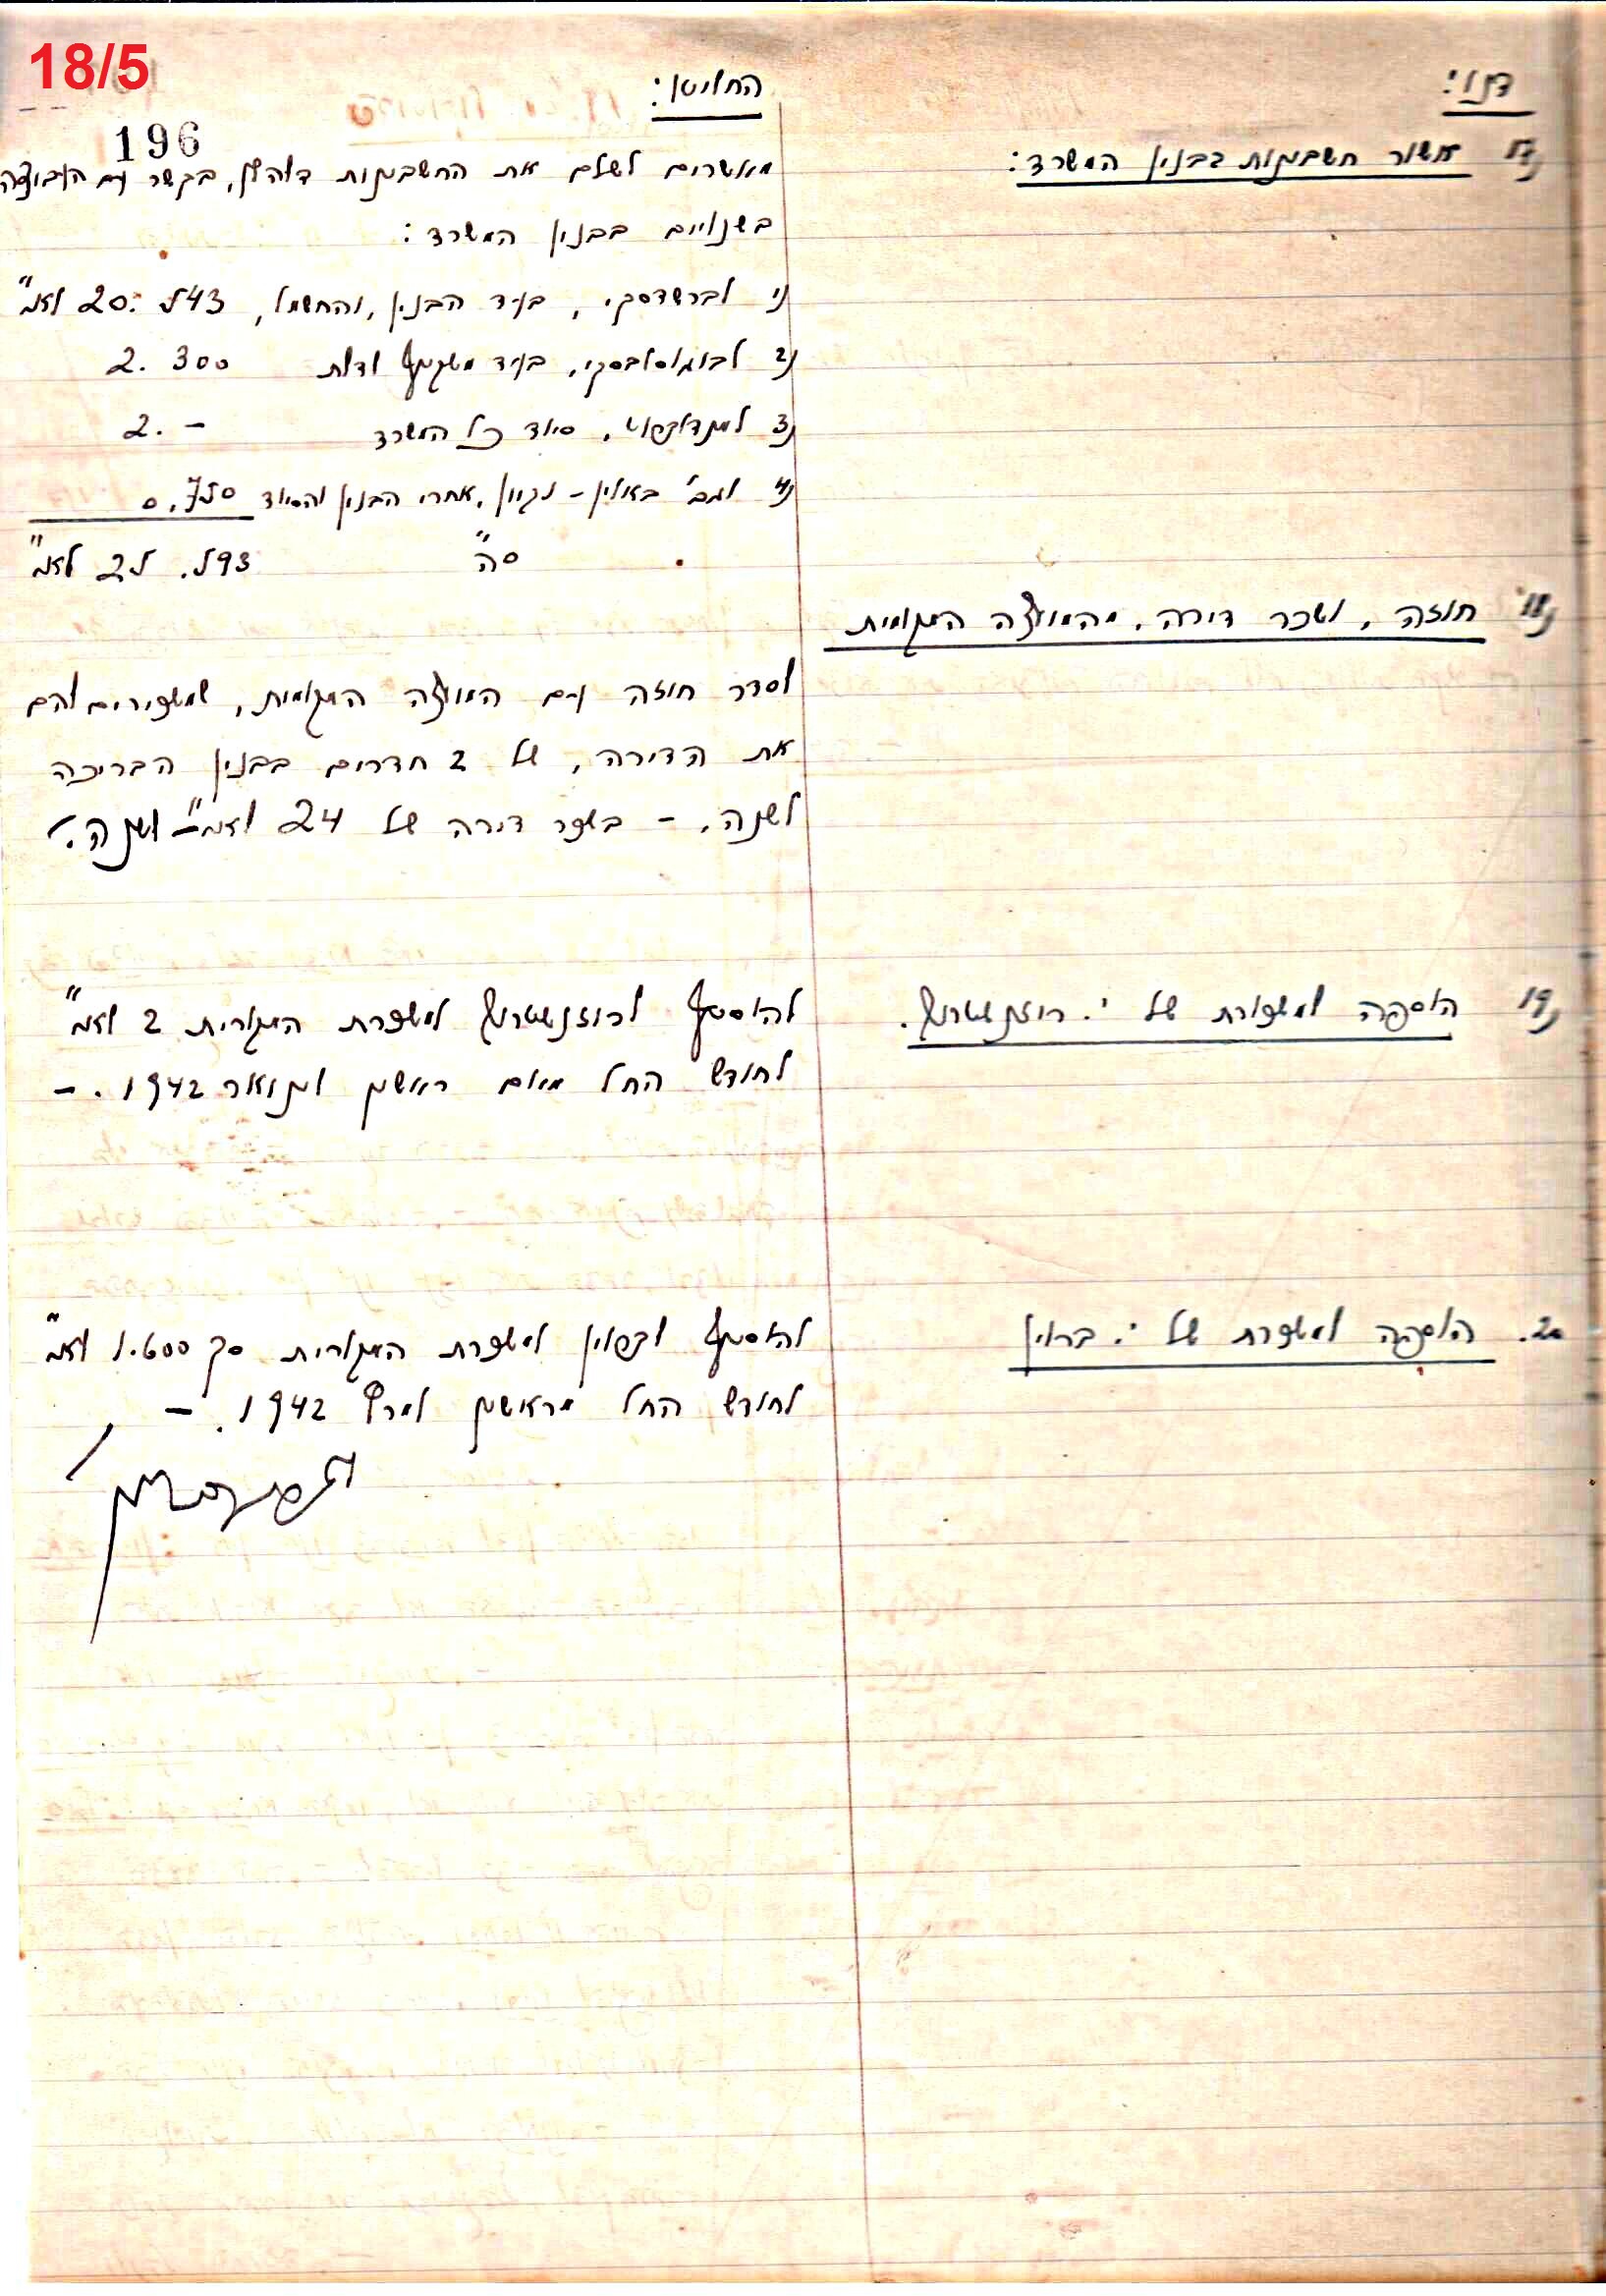 18/5
196
דנו:
החליטו:
17) אשור חשבונות בבנין המשרד:
מאשרים לשלם את החשבונות דלהלן, בקשר עם העבודה
בשנויים בבנין המשרד:
לברשדסקי, בעד הבנין, והחשמל, 20. לא"י
2) לבוגוסלבסקי, בעד משקוף ודלת 2. 300
3) סיוד כל המשרד 2. -
4) לגב' באולין - נקיון, אחרי הבנין והסיוד 0.750
ס"ה לא"י
18) חוזה, ושכר דירה, מהמועצה המקומית
לסדר חוזה עם המועצה המקומית, שמשכירים להם
את הדירה, של 2 חדרים בבנין הבריכה
לשנה. - בשכר דירה של 24 לא"י לשנה.
19) הוספה למשכורת של י. רוזנשטרוך.
להוסיף לרוזנשטרוך למשכורת המקורית 2 לא"י
לחודש החל מיום ראשון ינואר 1942. -
20. הוספה למשכורת של י. באולין
להוסיף למשכורת המקורית סך 1.600 לא"י
לחודש החל מראשון למרץ 1942. -